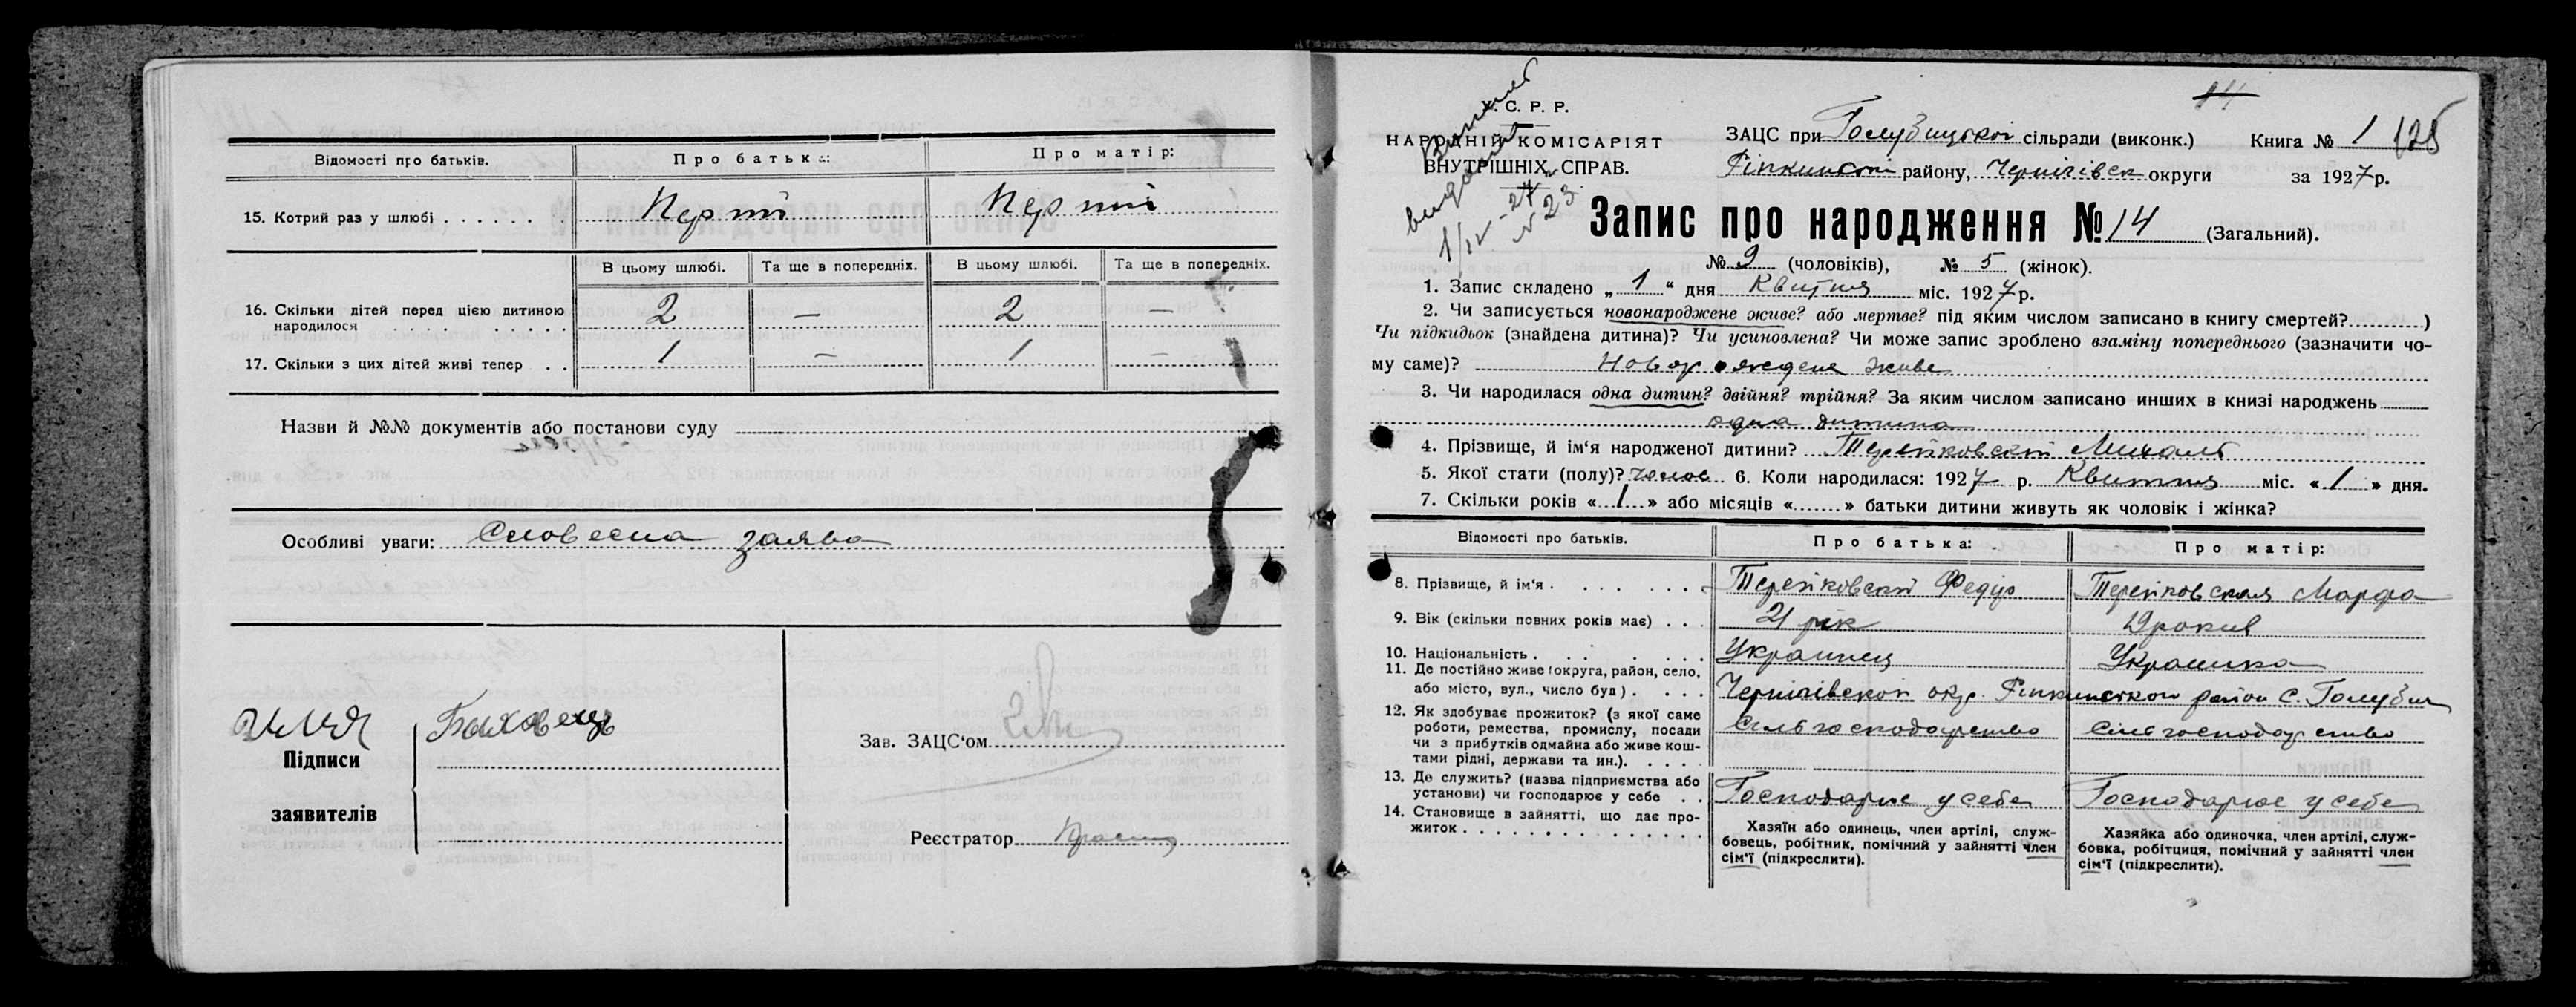 Відомості про батьків. Про батька: Про матір:
15. Котрий раз у шлюбі . . . . . . Перший Перший
В цьому шлюбі. Та ще в попередніх. В цьому шлюбі. Та ще в попередніх.
16. Скільки дітей перед цією дитиною
народилося . . . . . . . . . 2 — 2 —
17. Скільки з цих дітей живі тепер . . 1 — 1 —
Назви й №№ документів або постанови суду
Особливі уваги: Словесна заява
Підписи
заявителів
Зав. ЗАЦС'ом
Реєстратор
14
У. С. Р. Р.
НАРОДНІЙ КОМІСАРІЯТ
ВНУТРІШНІХ СПРАВ.
ЗАЦС при Голубицькой сільради (виконк.) Книга № 1 125
Ріпкинскої району, Чернігівск округи за 1927 р.
Запис про народження № 14 (Загальний).
№ 9 (чоловіків), № 5 (жінок).
1. Запис складено „ 1 “ дня Квитня міс. 1927 р.
2. Чи записується новонароджене живе? або мертве? під яким числом записано в книгу смертей?..........)
Чи підкидьок (знайдена дитина)? Чи усиновлена? Чи може запис зроблено взаміну попереднього (зазначити чо-
му саме)? Новорожденя живе
3. Чи народилася одна дитин? двійня? трійня? За яким числом записано инших в книзі народжень
одна дитина
4. Прізвище, й ім'я народженої дитини? Терейковскій Михаил
5. Якої стати (полу)? чолов 6. Коли народилася: 1927 р. Квитня міс. « 1 » дня.
7. Скільки років « 1 » або місяців «.......» батьки дитини живуть як чоловік і жінка?
Відомості про батьків. Про батька: Про матір:
8. Прізвище, й ім'я . . . . . . . Терейковскій Федір Терейковская Марфа
9. Вік (скільки повних років має) . . . 21 рік 19 рокив
10. Національність . . . . . . . Украинец Украинка
11. Де постійно живе (округа, район, село,
або місто, вул., число буд) . . . . Чернігівской окр. Ріпкинского район с. Голубич
12. Як здобуває прожиток? (з якої саме
роботи, ремества, промислу, посади
чи з прибутків одмайна або живе кош-
тами рідні, держави та ин.). . . . . Сильгосподарство Сильгосподарство
13. Де служить? (назва підприємства або
установи) чи господарює у себе . . Господарює у себе Господарює у себе
14. Становище в зайнятті, що дає про-
житок . . . . . . . . . . . . . .
Хазяїн або одинець, член артілі, служ-
бовець, робітник, помічний у зайнятті член
сім'ї (підкреслити).
Хазяйка або одиночка, член артілі, служ-
бовка, робітциця, помічний у зайнятті член
сім'ї (підкреслити).